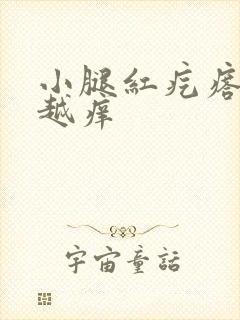 小腿紅疙瘩
越痒
宇宙童話